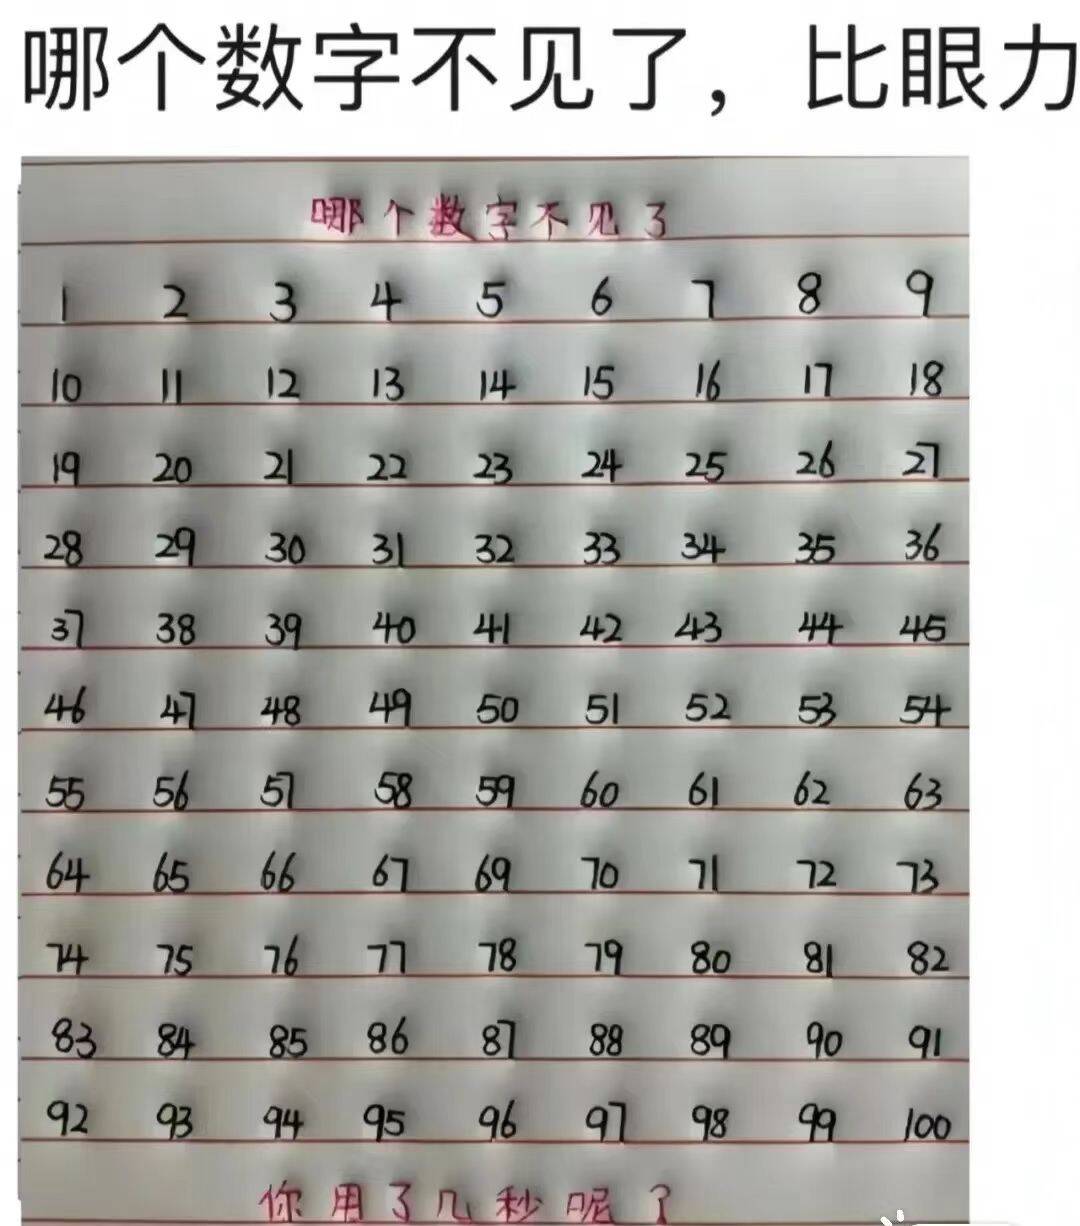 哪个数字不见了，比眼力
哪个数字不见了
1 2 3 4 5 6 7 8 9
10 11 12 13 14 15 16 17 18
19 20 21 22 23 24 25 26 27
28 29 30 31 32 33 34 35 36
37 38 39 40 41 42 43 44 45
46 47 48 49 50 51 52 53 54
55 56 57 58 59 60 61 62 63
64 65 66 67 69 70 71 72 73
74 75 76 77 78 79 80 81 82
83 84 85 86 87 88 89 90 91
92 93 94 95 96 97 98 99 100
你用了几秒呢？